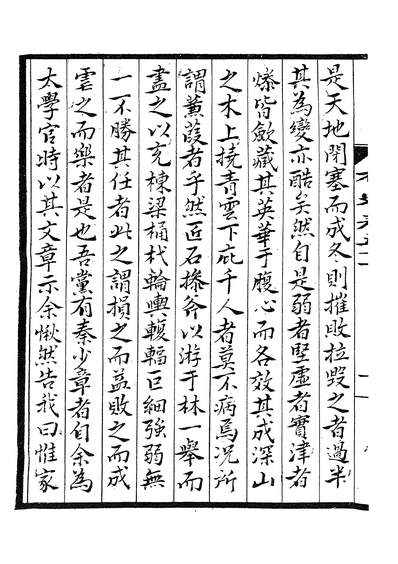 是天地閉塞而成冬則摧敗拉毀之者過半
其為變亦酷矣然自是弱者堅虛者實津者
燥皆歛藏其英華于腹心而各效其成深山
之木上撓青雲下庇千人者莫不病焉况所
謂蒹葭者乎然匠石操斧以游于林一舉而
盡之以充棟梁桷杙輪輿輹輻巨細強弱無
一不勝其任者此之謂損之而益敗之而成
虐之而樂者是也吾黨有秦少章者自余為
太學官時以其文章示余愀然告我曰惟家